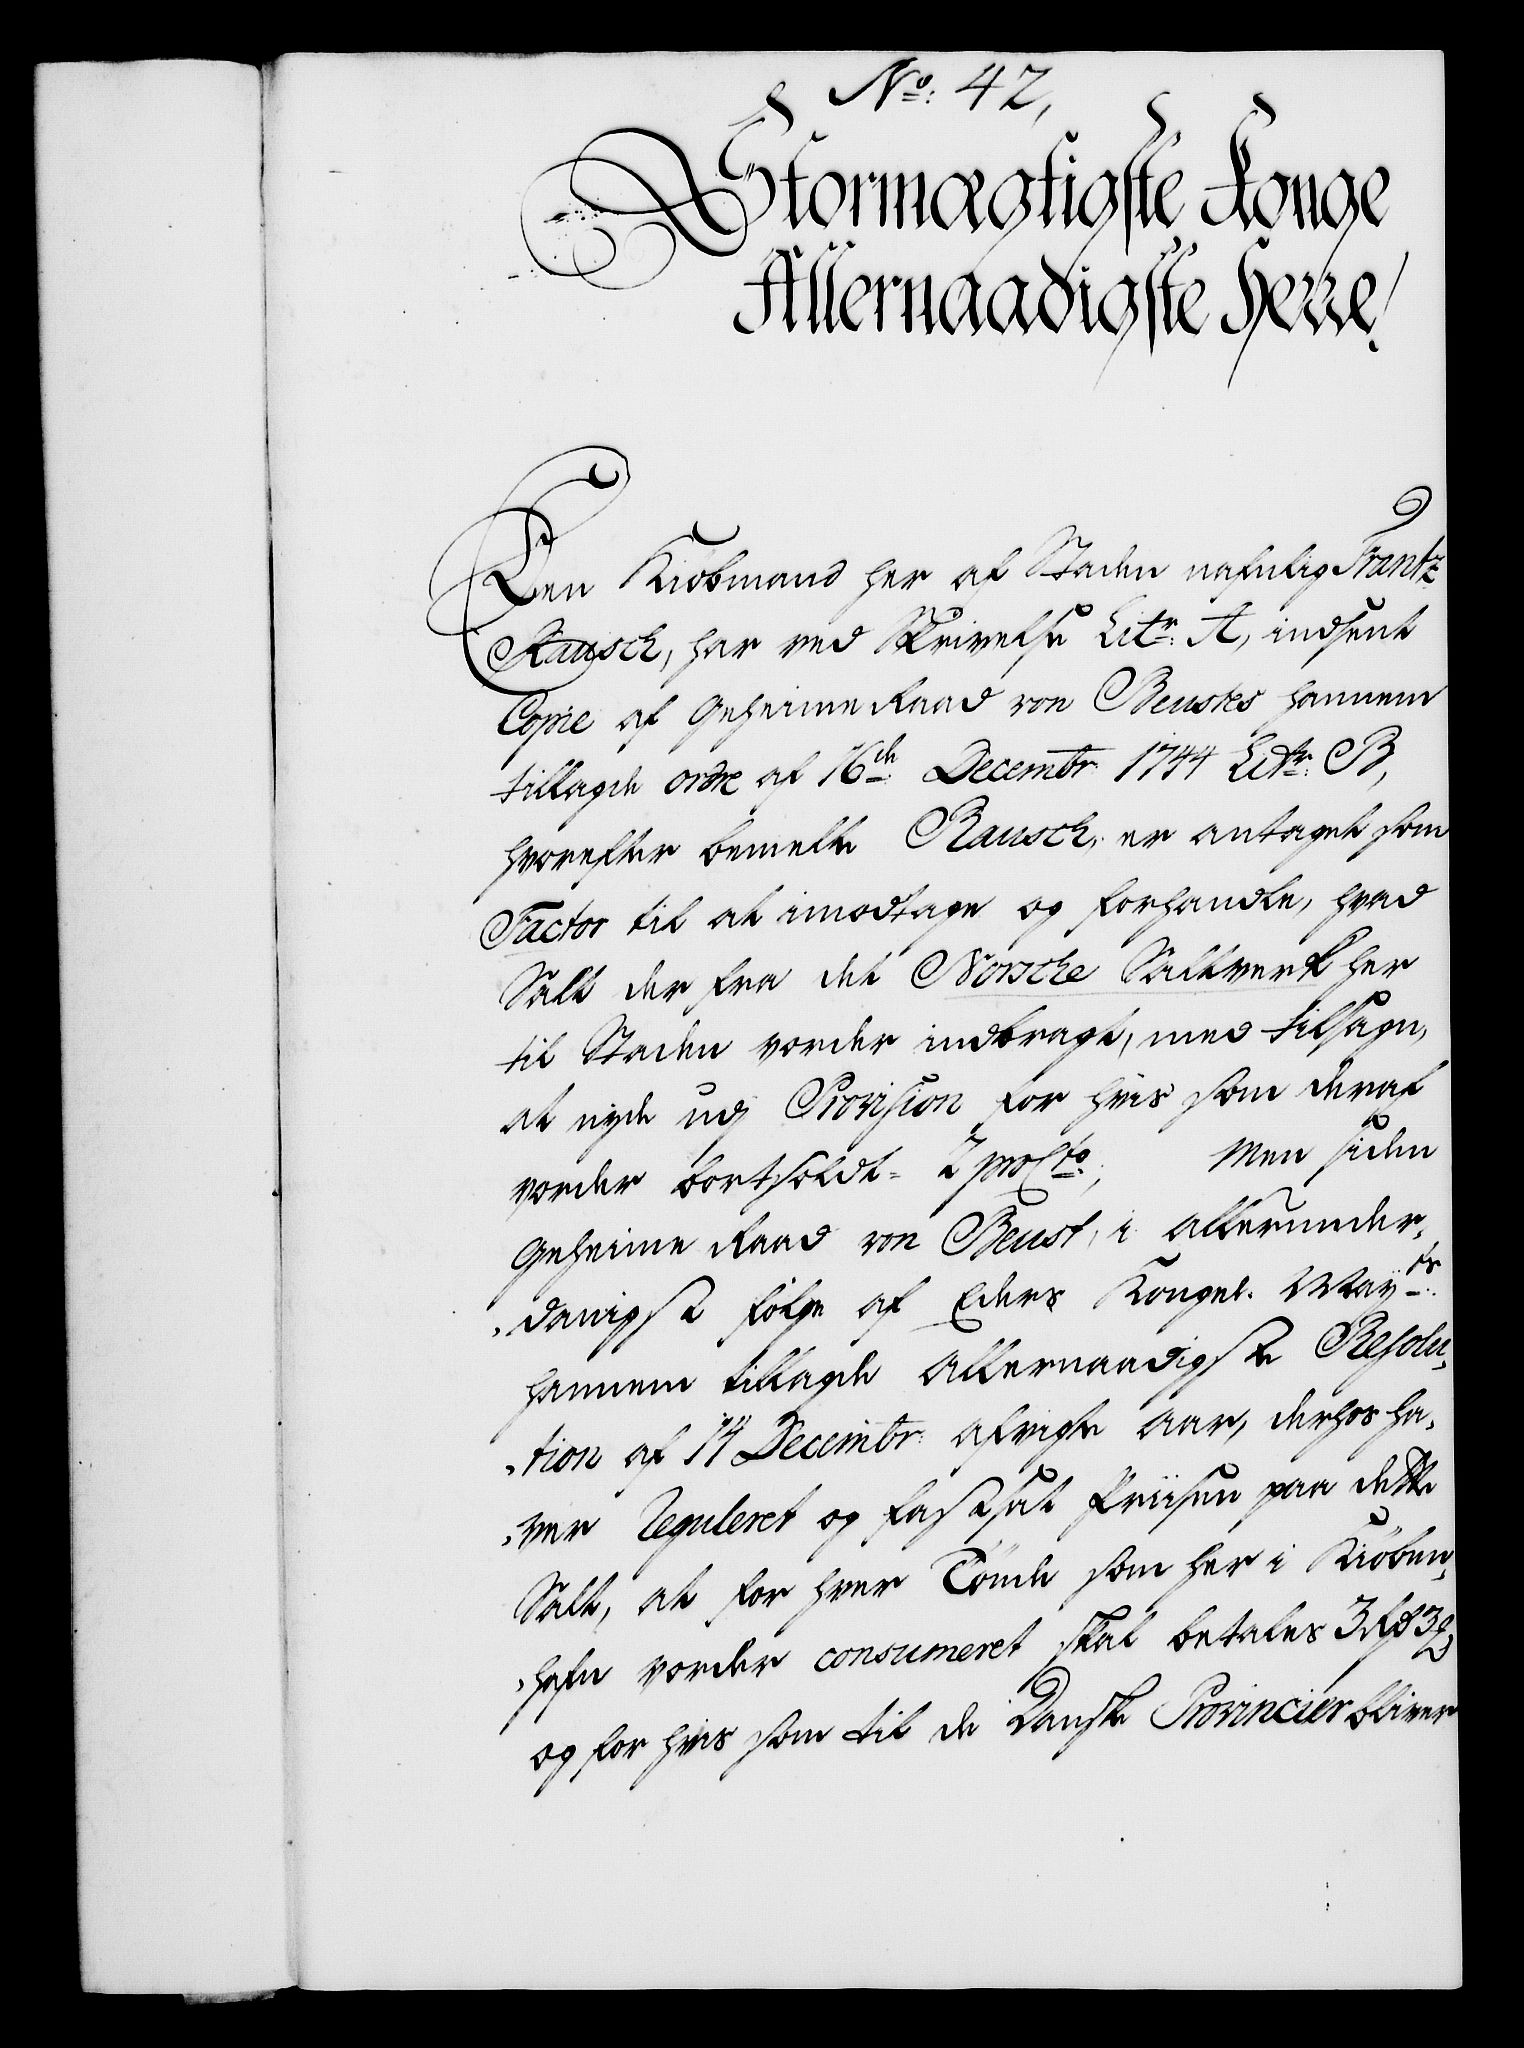 No: 42,
Stormægtigste Konge
Allernaadigste Herre!
Den Kiöbmand her af Staden nafnlig Frantz
Rausch, har ved Skrivelse Litr: A, indsent
Copie af Geheime Raad von Beustes hannem
tillagde ordre af 16de Decembr: 1744 Litr: B,
hvorefter bemelte Rausch, er antaget som
Factor til at imodtage og forhandle, hvad
Salt der fra det Norsche Saltverk her
til Staden vorder indbragt, med tilsagn,
at nyde udj Provision for hvis som deraf
vorder bortsoldt = 2 proCto; Men siden
Geheime Raad von Beust, i allerunder,
,danigst følge af Eders Kongel. May:ts
hannem tillagde allernaadigste Resolu,
,tion af 14 Decembr: afvigte aar, derhos ha,
,ver reguleret og fastsat Priisen paa dette
Salt, at for hver Tönde som her i Kiöben,
,hafn vorder consumeret skal betales 3 Rd 3 ß
og for hvis som til de Danske Provincier bliver